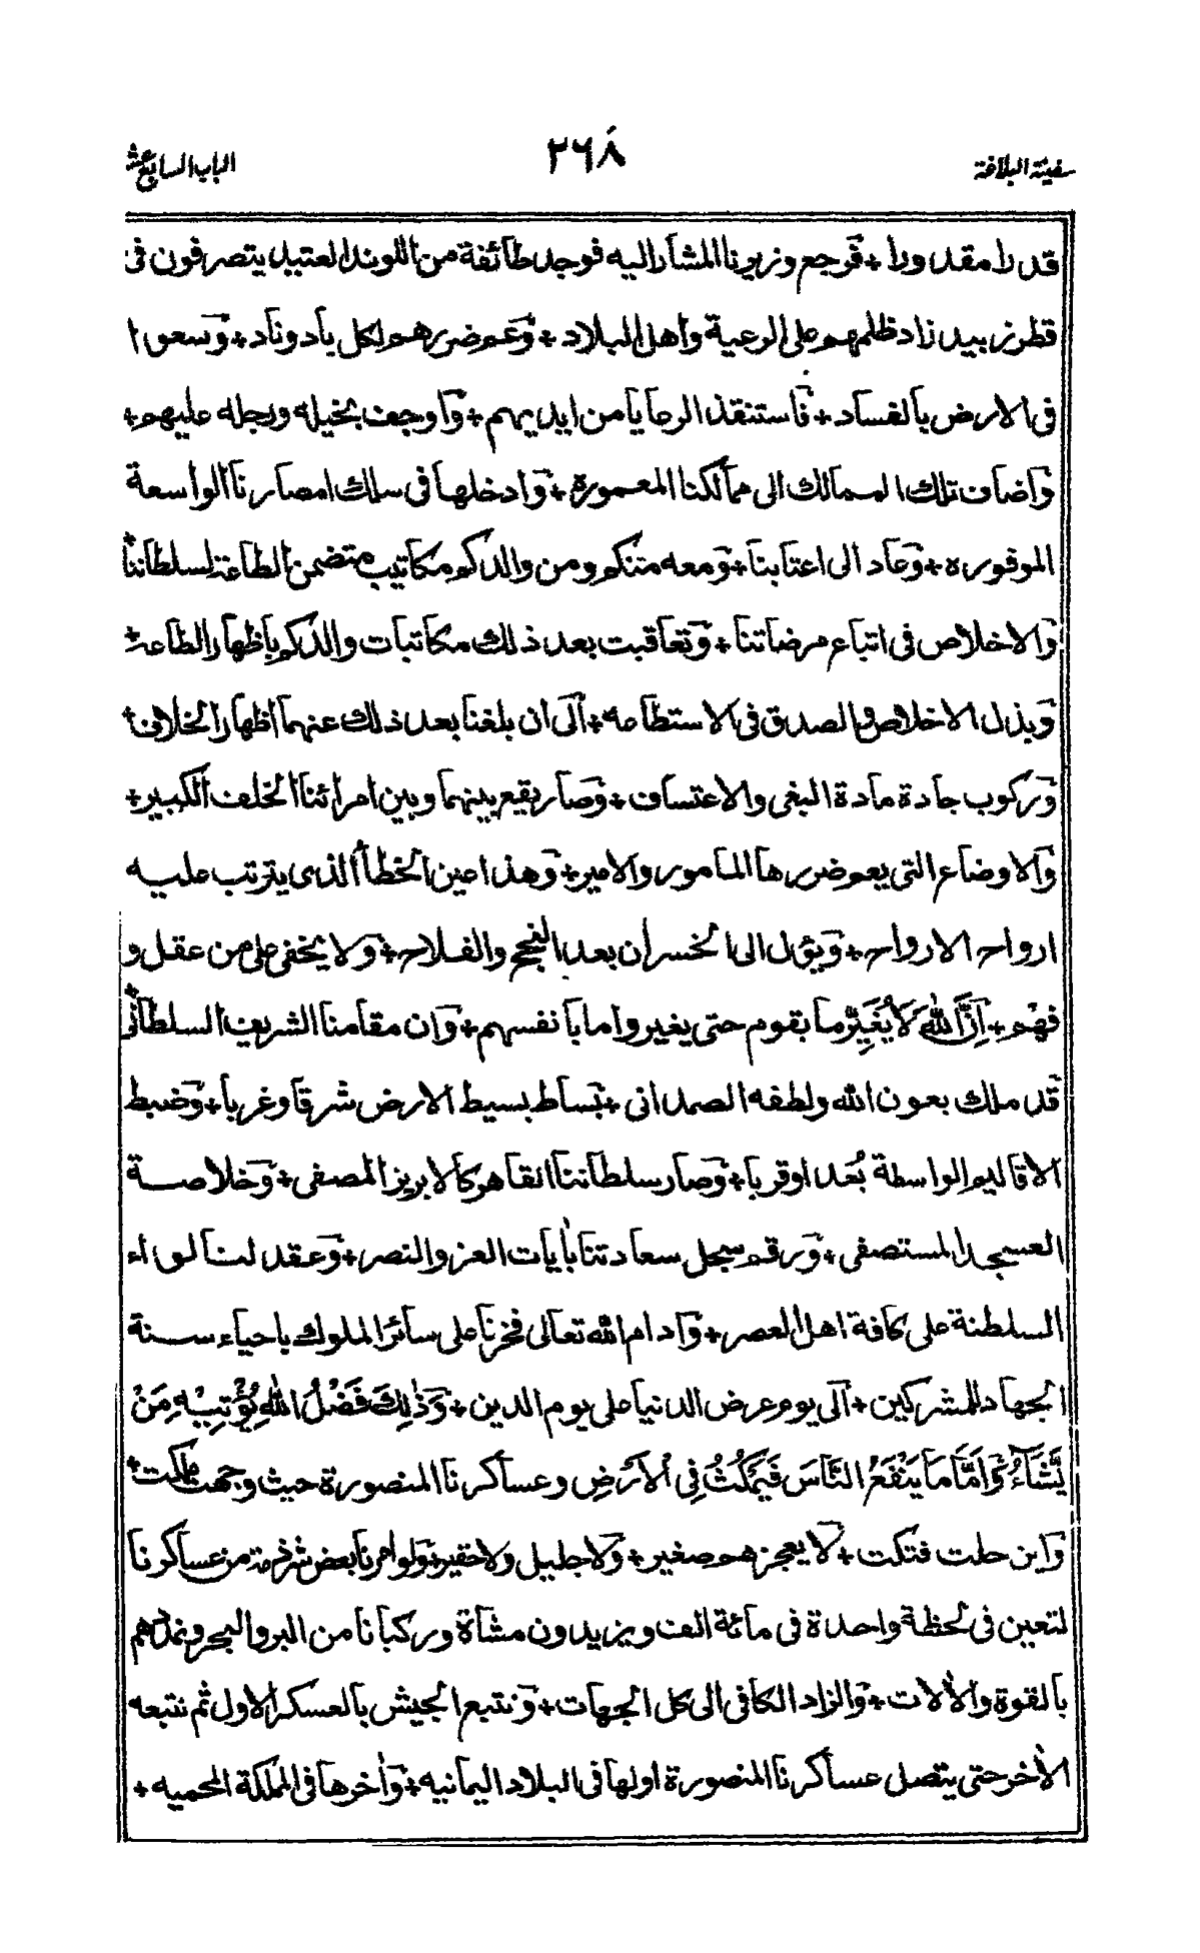 سفينة البلاغة ٢٦٨ الباب السابع عشر
قدرا مقدورا + فرجع وزيرنا المشار اليه فوجد طائفة من اللوند العتيد يتصرفون فى
قطر زبيد زاد ظلمهم على الرعية واهل البلاد + وعم ضررهم لكل باد وناد + وسعوا
فى الارض بالفساد + فاستنقذ الرعايا من ايديهم + واوجف بخيله ورجله عليهم +
واضاف تلك الممالك الى ممالكنا المعمورة + وادخلها فى سلك امصارنا الواسعة
الموفوره + وعاد الى اعتابنا + ومعه منكم ومن والدكم مكاتيب متضمن الطاعة لسلطاننا +
والاخلاص فى اتباع مرضاتنا + وتعاقبت بعد ذلك مكاتبات والدكم باظهار الطاعة +
وبذل الاخلاص والصدق فى الاستطاعه + الى ان بلغنا بعد ذلك عنهما اظهار الخلاف +
وركوب جادة مادة البغى والاعتساف + وصار يقع بينهما وبين امرائنا الخلف الكبير +
والاوضاع التى يعم ضررها المامور والامير + وهذا عين الخطأ الذى يترتب عليه
ارواح الارواح + ويؤل الى الخسران بعد النجح والفلاح + ولا يخفى على من عقل و
فهم + اِنَّ اللهَ لَا يُغَيِّرُ ما بقوم حتى يغيروا ما بانفسهم + وان مقامنا الشريف السلطانى +
قد ملك بعون الله ولطفه الصمدانى + بساط بسيط الارض شرقا وغربا + وضبط
الاقاليم الواسطة بُعدا وقربا + وصار سلطاننا القاهر كالابريز المصفى + وخلاصة
العسجد المستصفى + ورقم سجل سعادتنا بأيات العز والنصر + وعقد لنا لواء
السلطنة على كافة اهل العصر + وادام الله تعالى فخرنا على سائر الملوك باحياء سنة
الجهاد للمشركين + الى يوم عرض الدنيا على يوم الدين + وَذٰلِكَ فَضْلُ اللهِ يُؤْتِيْهِ مَنْ
يَّشَآءُ وَاَمَّا مَا يَنْفَعُ النَّاسَ فَيَمْكُثُ فِى الْاَرْضِ وعساكرنا المنصورة حيث وجهت ملكت +
واين حلت فتكت + لا يعجزهم صغير + ولا جليل ولا حقير + ولو امرنا بعض شرذمة من عساكرنا
لتعين فى لحظة واحدة فى مائة الف ويزيدون مشاة وركبانا من البر والبحر ونمدهم
بالقوة والألات + والزاد الكافى الى كل الجهات + ونتبع الجيش بالعسكر الاول ثم نتبعه
الأخر حتى يتصل عساكرنا المنصورة اولها فى البلاد اليمانيه + وأخرها فى المملكة المحميه +